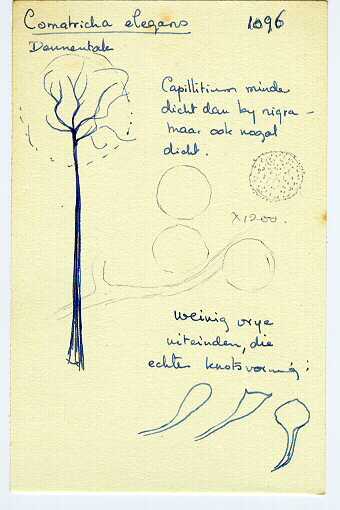 Comatricha elegans 1096
Dennentak
Capillitium minder
dicht dan by nigra -
maar ook nogal
dicht.
X1200.
Weinig vrye
uiteinden, die
echter knotsvormig: